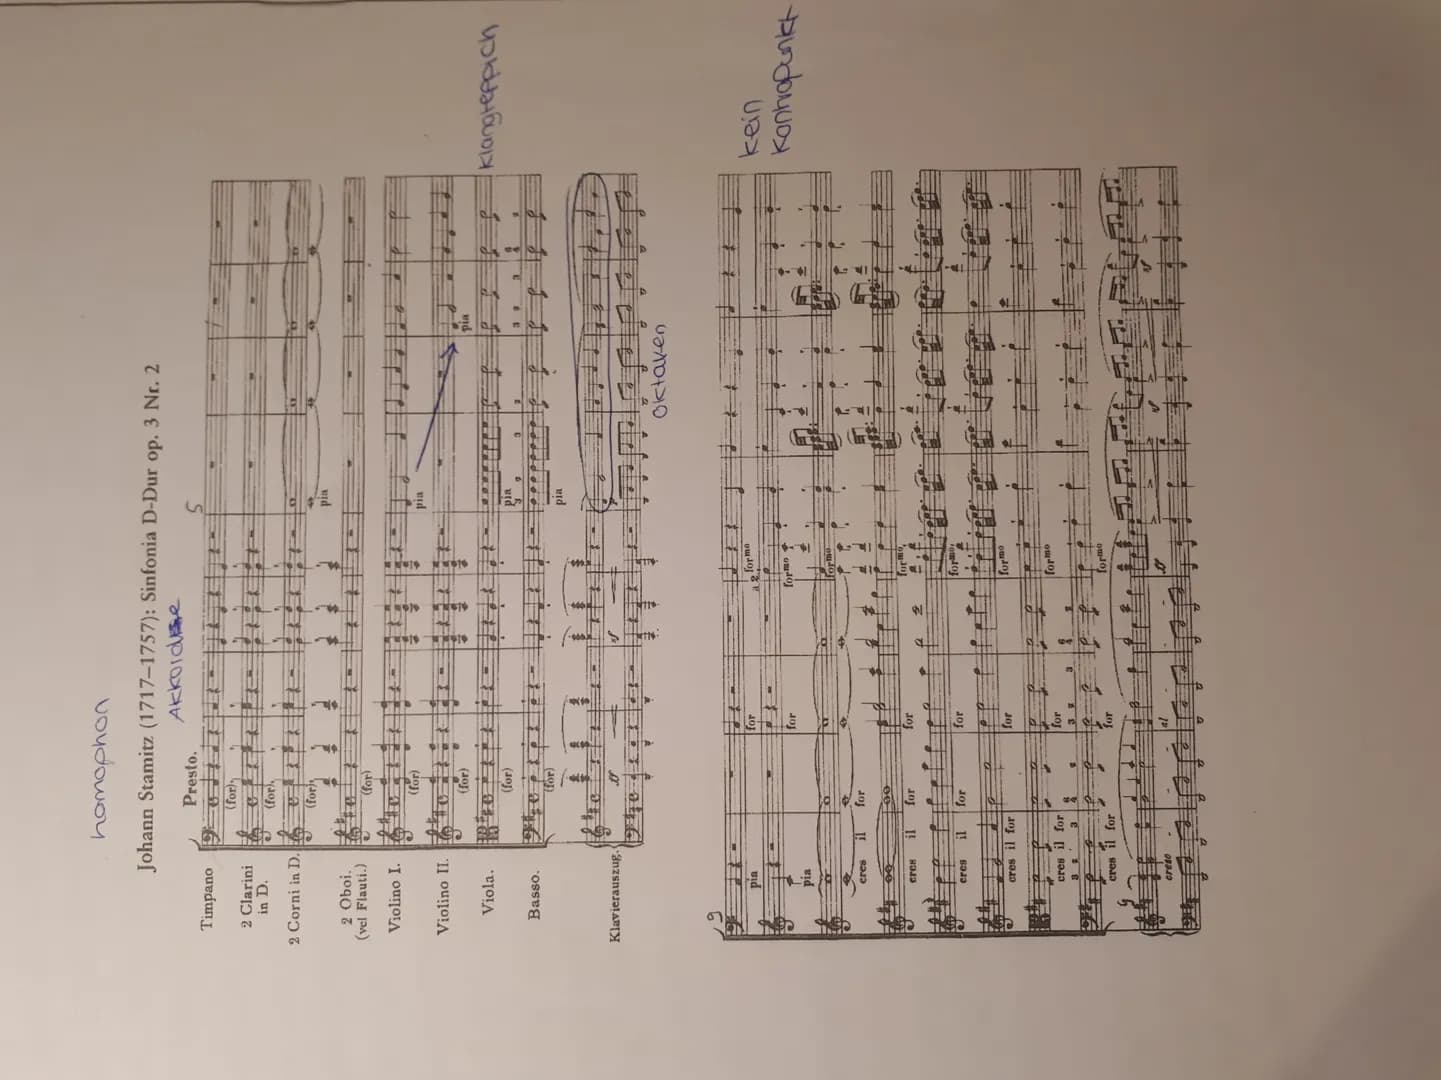 homophon
Johann Stamitz (1717–1757): Sinfonia D-Dur op. 3 Nr. 2
Akkorde
Presto.
5
Timpano
(for)
2 Clarini
in D.
(for)
2 Corni in D.
(for)
pia
2 Oboi.
(vel Flauti.)
(for)
Violino I.
(for)
pia
Violino II.
(for)
pia
Viola.
(for)
pia
Klangteppich
Basso.
(for)
pia
Klavierauszug.
ff
sf
p
Oktaven
9
pia
for
formo
kein
Kontrapunkt
a 2
pia
for
formo
cres il for
formo
cres il for
for
formo
cres il
for
formo
cres il for
for
formo
cres il for
for
formo
cres il for
for
formo
9
cresc
al
ff
sf
sf